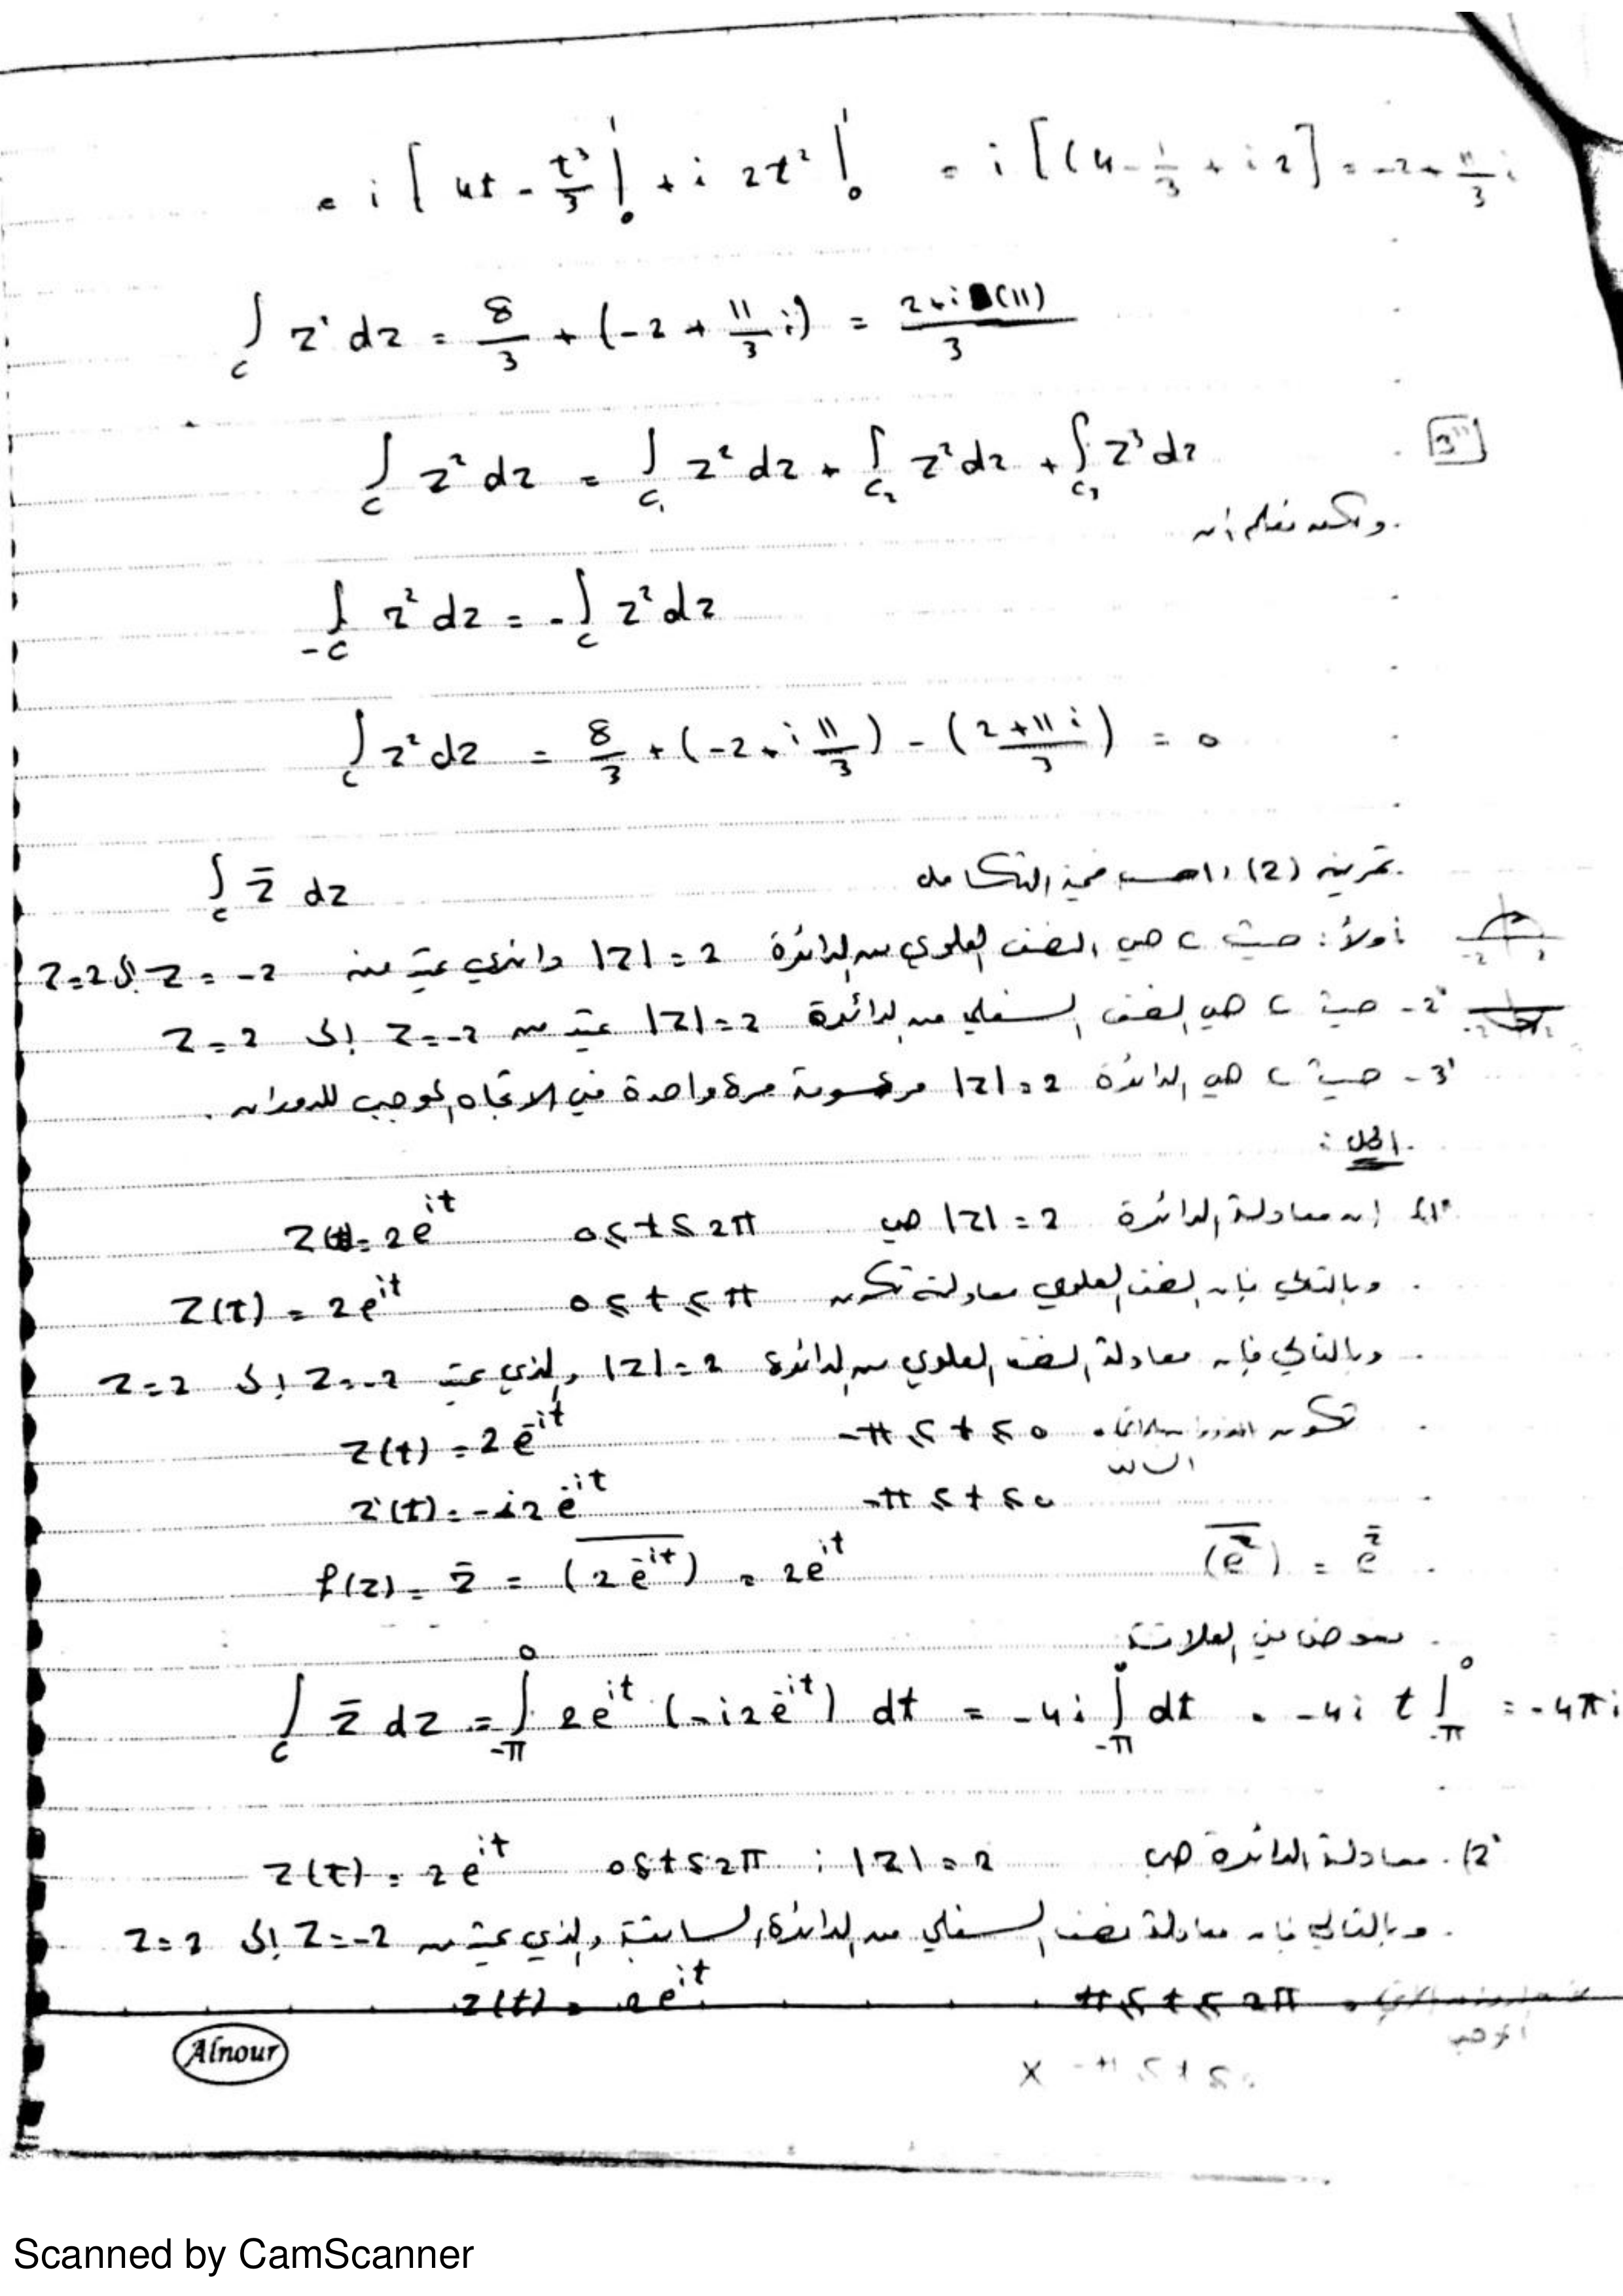 = i [ 4t - t³/3 |₀¹ + i 2t² |₀¹ = i [(4 - 1/3 + i 2] = -2 + 11/3 i
∫_c z² dz = 8/3 + (-2 + 11/3 i) = 2+i(11)/3
3" ∫_c z² dz = ∫_c₁ z² dz + ∫_c₂ z² dz + ∫_c₃ z² dz
ولكن نعلم أن
∫_-c z² dz = -∫_c z² dz
∫_c z² dz = 8/3 + (-2 + i 11/3) - (2+11i/3) = 0
تمرين (2) احسب قيمة التكامل ∫_c z̄ dz
أولاً: حيث c هي النصف العلوي من الدائرة |z| = 2 والذي يمتد من z = -2 إلى z = 2
2- حيث c هي النصف السفلي من الدائرة |z| = 2 يمتد من z = -2 إلى z = 2
3- حيث c هي الدائرة |z| = 2 مرسومة مرة واحدة في الاتجاه الموجب للدوران.
الحل:
1) إن معادلة الدائرة |z| = 2 هي 0 ≤ t ≤ 2π z(t) = 2e^{it}
وبالتالي فإن النصف العلوي معادلته تكون 0 ≤ t ≤ π z(t) = 2e^{it}
وبالتالي فإن معادلة النصف العلوي من الدائرة |z| = 2 والذي يمتد z = -2 إلى z = 2
تكون -π ≤ t ≤ 0 z(t) = 2e^{-it}
السالب
-π ≤ t ≤ 0 z'(t) = -i2e^{-it}
f(z) = z̄ = \overline{(2e^{-it})} = 2e^{it} \overline{(e^z)} = e^{z̄}
نعوض في العلاقة
∫_c z̄ dz = ∫_{-π}^0 2e^{it} (-i2e^{-it}) dt = -4i ∫_{-π}^0 dt = -4i t |_{-π}^0 = -4πi
2) معادلة الدائرة هي |z| = 2 ; 0 ≤ t ≤ 2π z(t) = 2e^{it}
وبالتالي فإن معادلة نصف السفلي من الدائرة السابقة والذي يمتد من z = -2 إلى z = 2
π ≤ t ≤ 2π z(t) = 2e^{it}
الموجب
x -π ≤ t ≤ 0
Alnour
Scanned by CamScanner